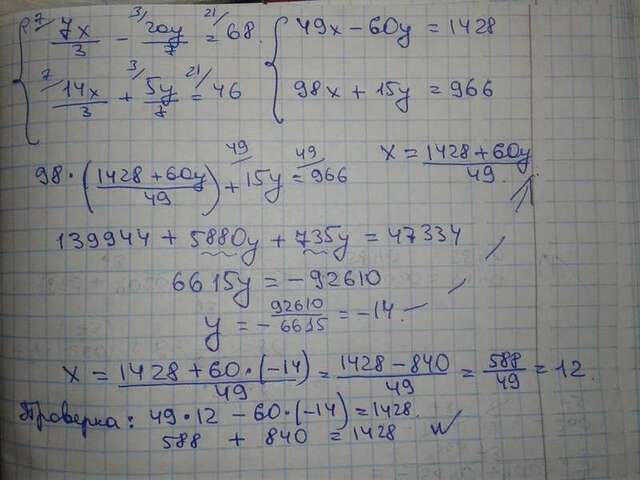 { 7/ 7x/3 - 3/ 20y/7 = 21/ 68. { 49x - 60y = 1428
7/ 14x/3 + 3/ 5y/7 = 21/ 46 98x + 15y = 966
98 · ((1428 + 60y)/49) + 49/ 15y = 49/ 966 x = (1428 + 60y)/49.
139944 + 5880y + 735y = 47334
6615y = -92610
y = - 92610/6615 = -14.
x = (1428 + 60 · (-14))/49 = (1428 - 840)/49 = 588/49 = 12.
Проверка: 49 · 12 - 60 · (-14) = 1428.
588 + 840 = 1428